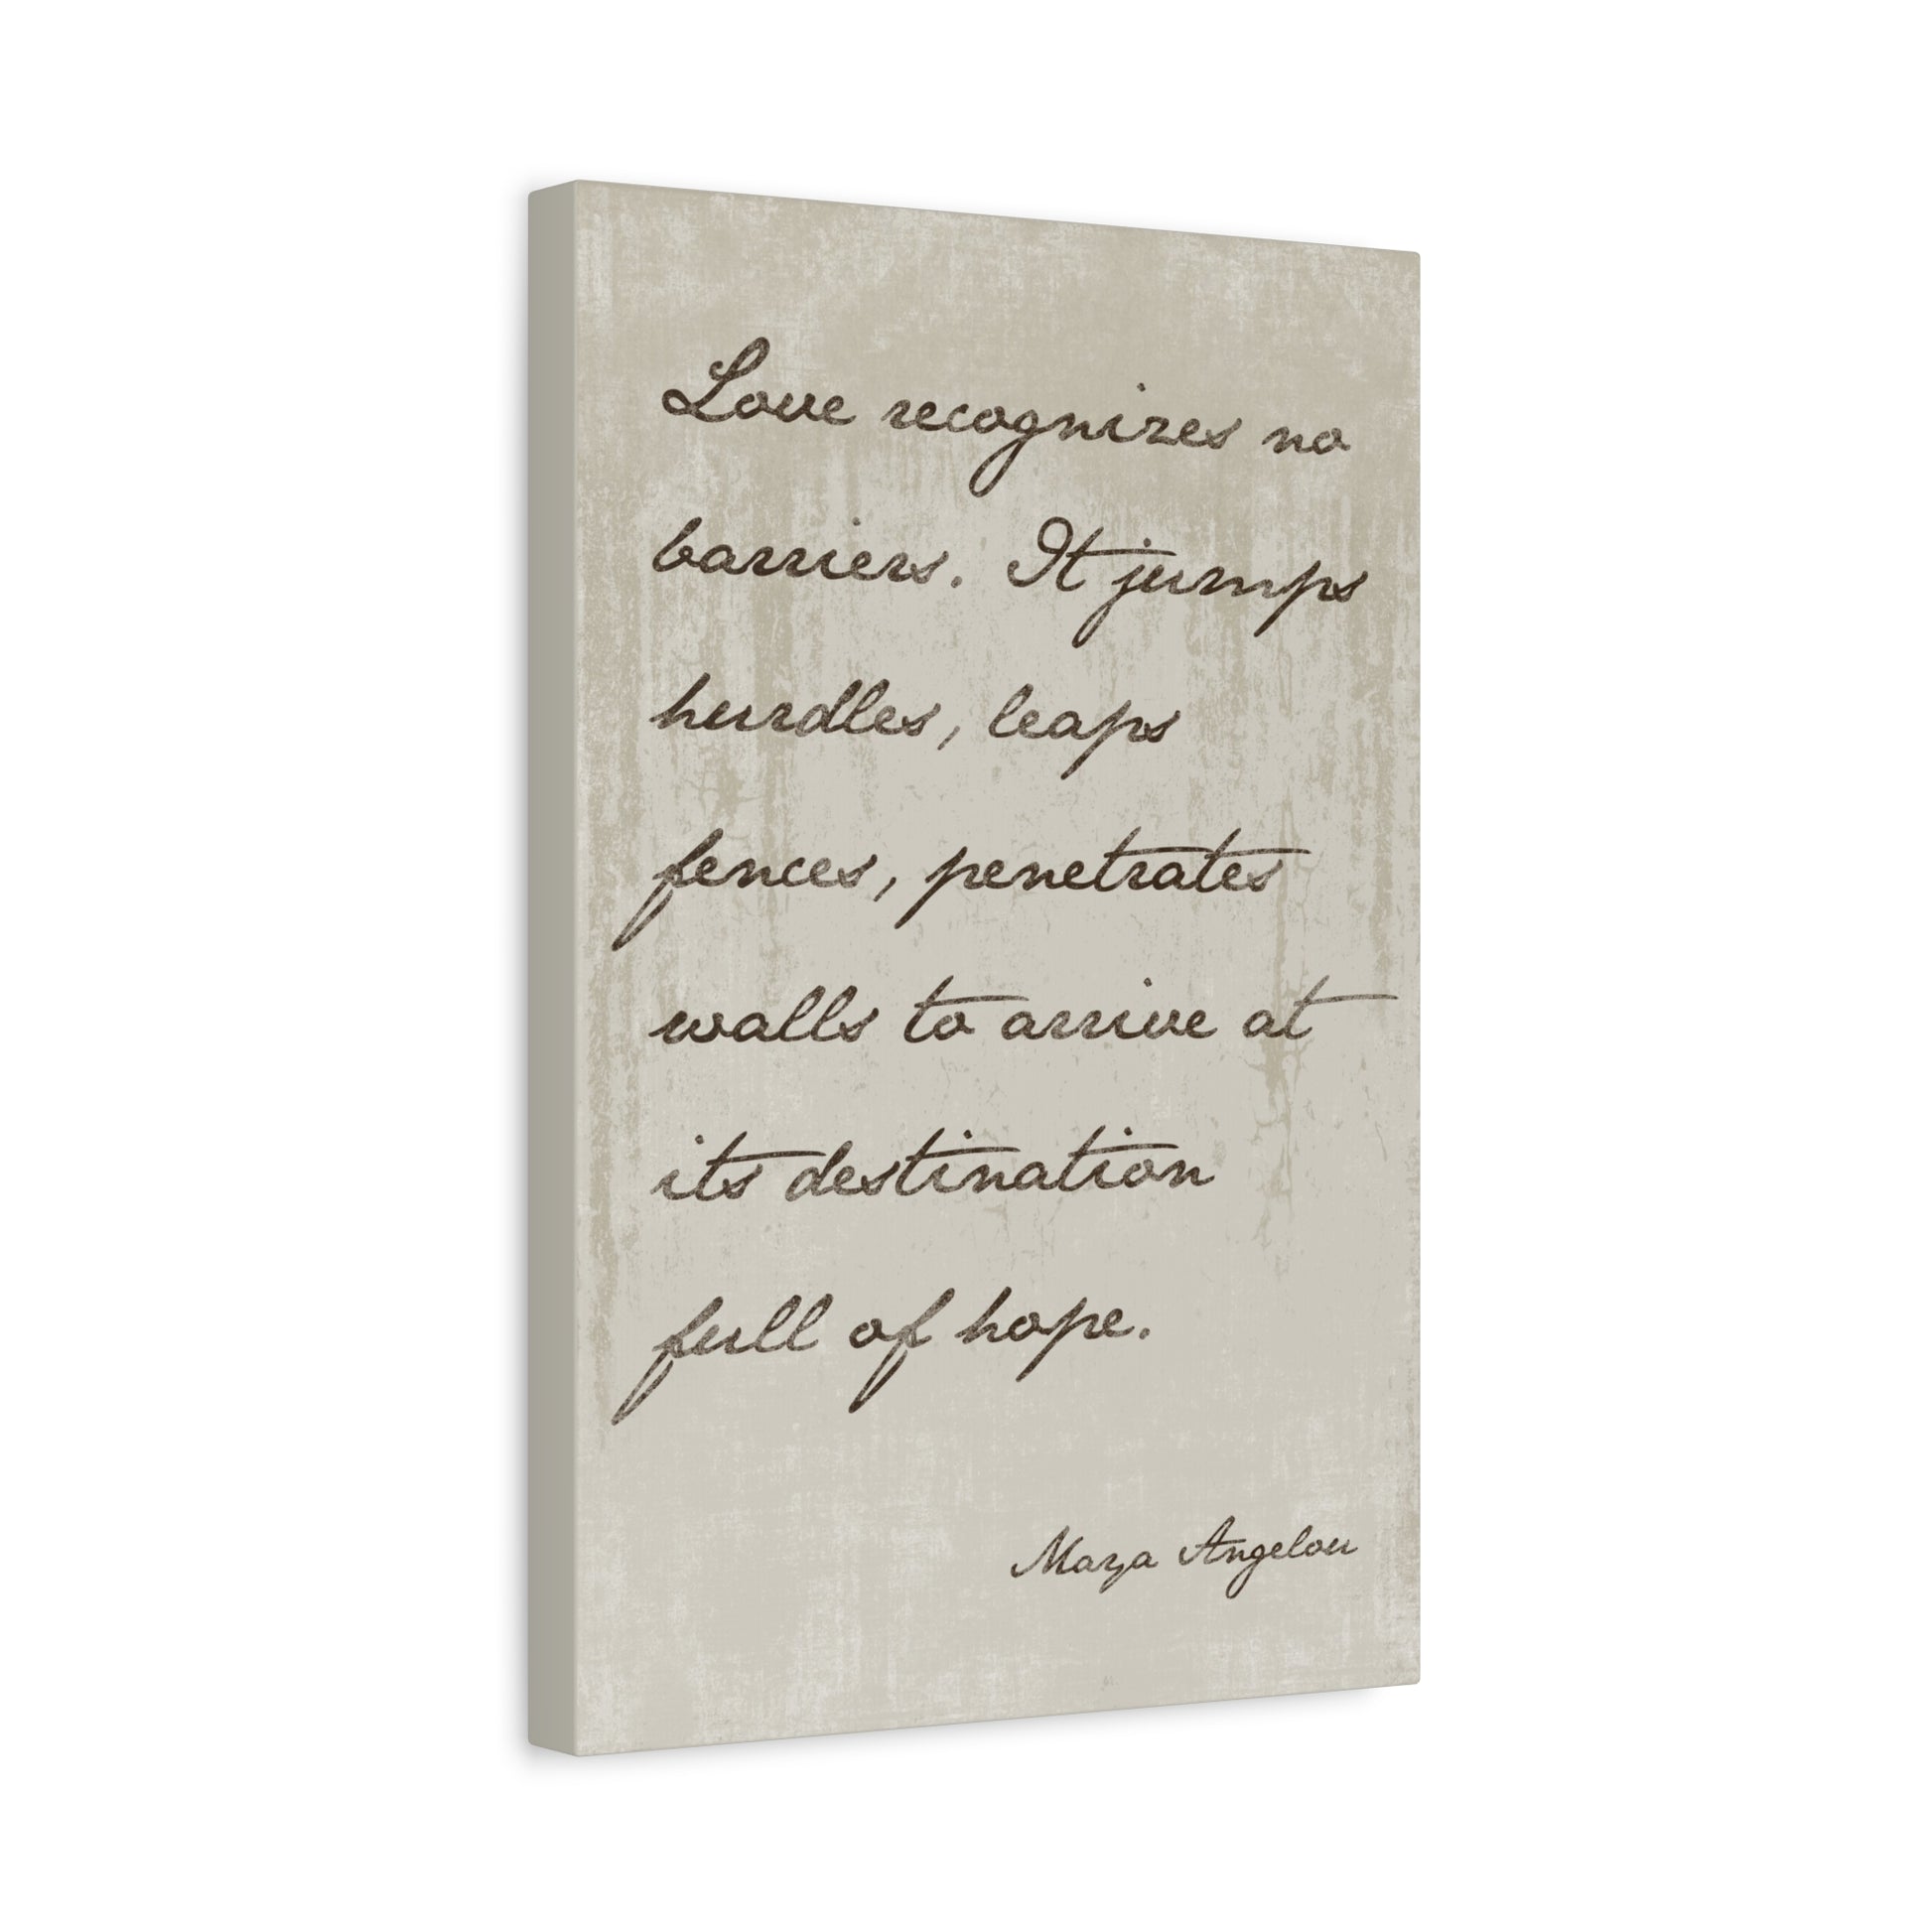 Love recognizes no
barriers. It jumps
hurdles, leaps
fences, penetrates
walls to arrive at
its destination
full of hope.
Maya Angelou